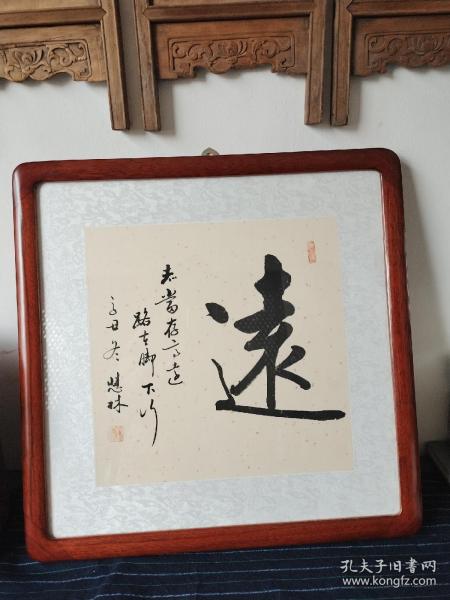 遠
志當存高遠
路在脚下行
辛丑冬 慧林
孔夫子旧书网
www.kongfz.com